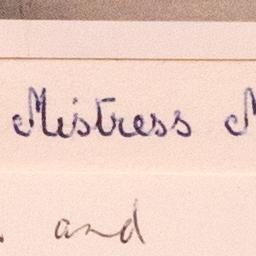 Mistress M
. and